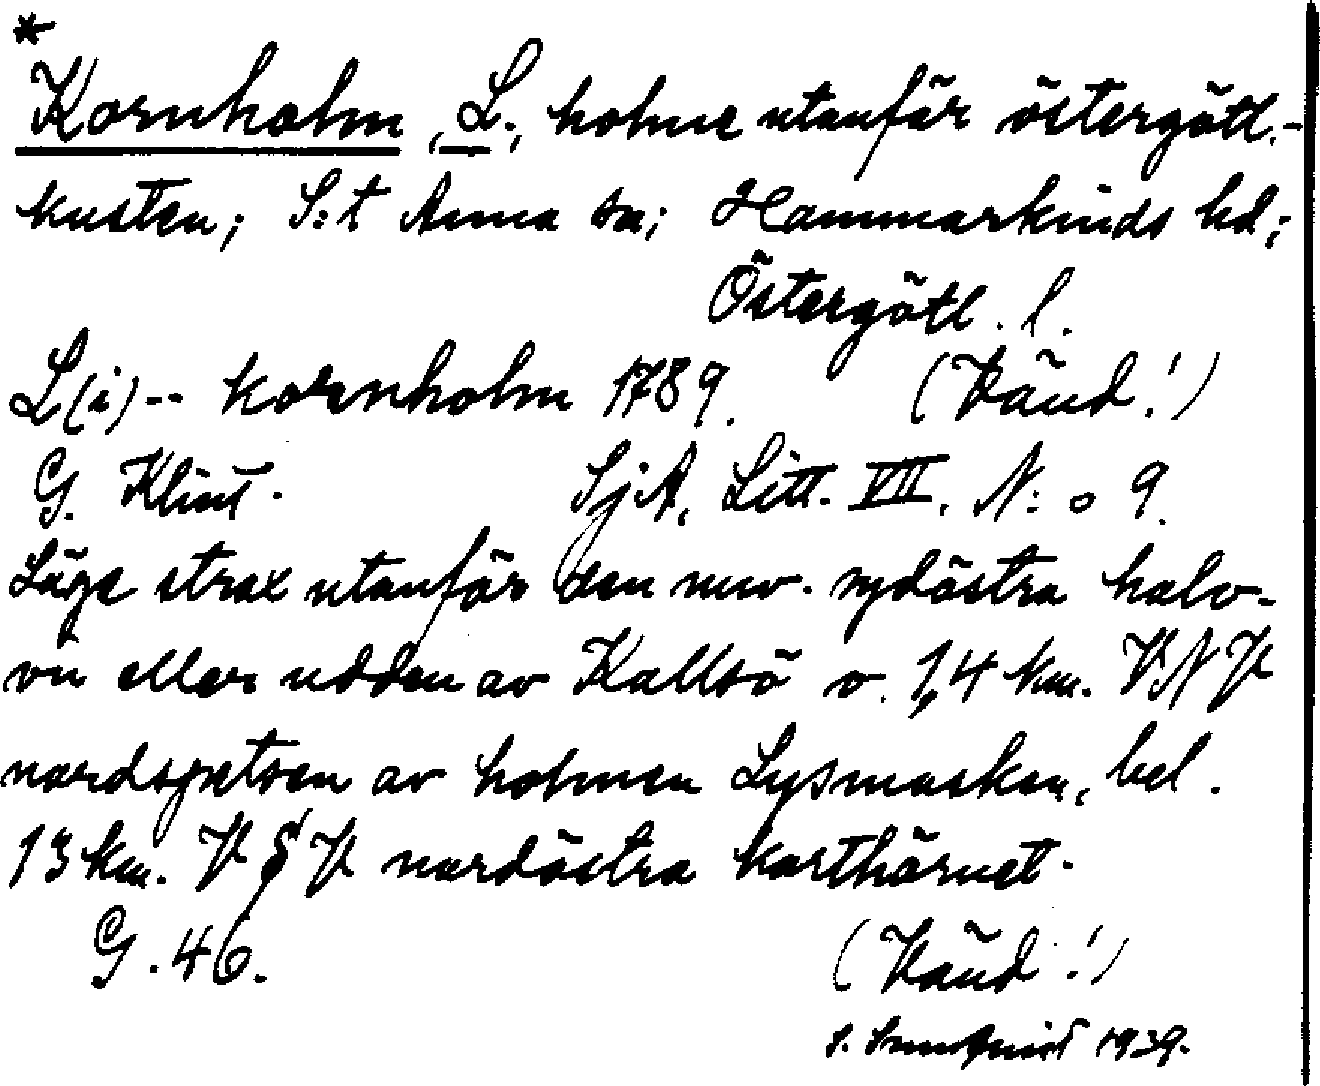 *
Kornholm, L., holme utanför östergötl.-
kusten; S:t Anna sn; Hammarkinds hd;
Östergötl. l.
L(i)-- kornholm 1789. (Vänd!)
G. Klint. SjA, Litt. VII. N:o 9.
Läge strax utanför den nuv. sydöstra halv-
ön eller udden av Kallsö o. 1,4 km. VNV
nordspetsen av holmen Lysmasken, bel.
13 km. VSV nordöstra karthörnet.
G. 46. (Vänd!)
1939.